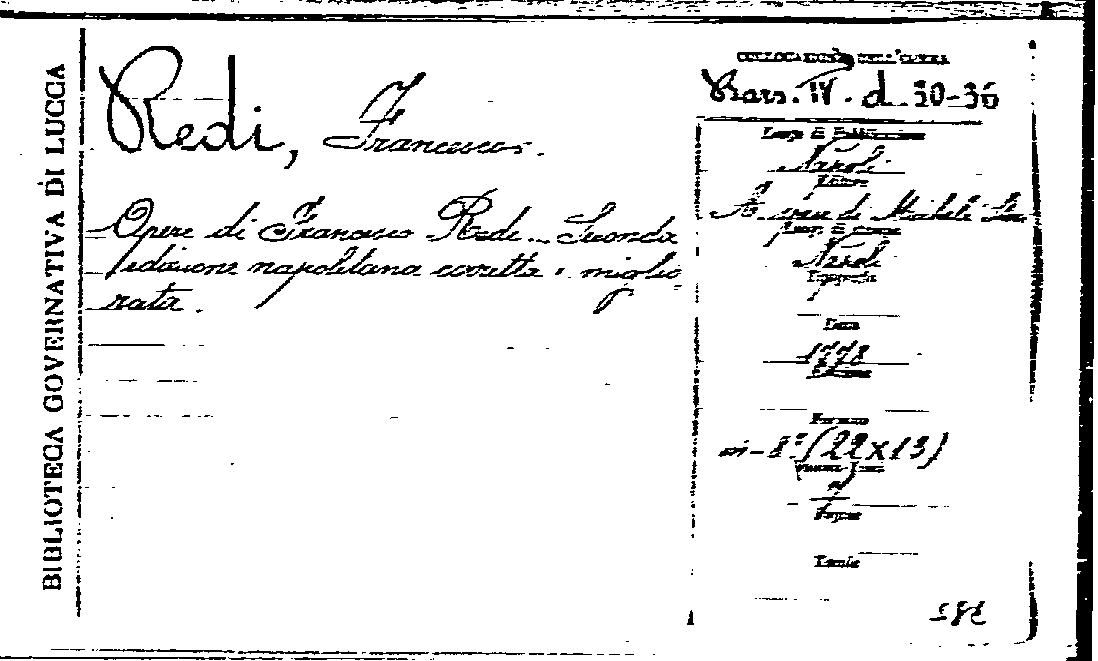 BIBLIOTECA GOVERNATIVA DI LUCCA
Redi, Francesco.
Opere di Francesco Redi. Seconda
edizione napolitana corretta e miglio
rata.
COLLOCAZIONE DELL'OPERA
IV. d. 30-36
Luogo di Pubblicazione
Napoli
Editore
A spese di Michele
Luogo di stampa
Napoli
Tipografia
Data
1778
Formato
in-8º (22x13)
7
Pagine
Tavole